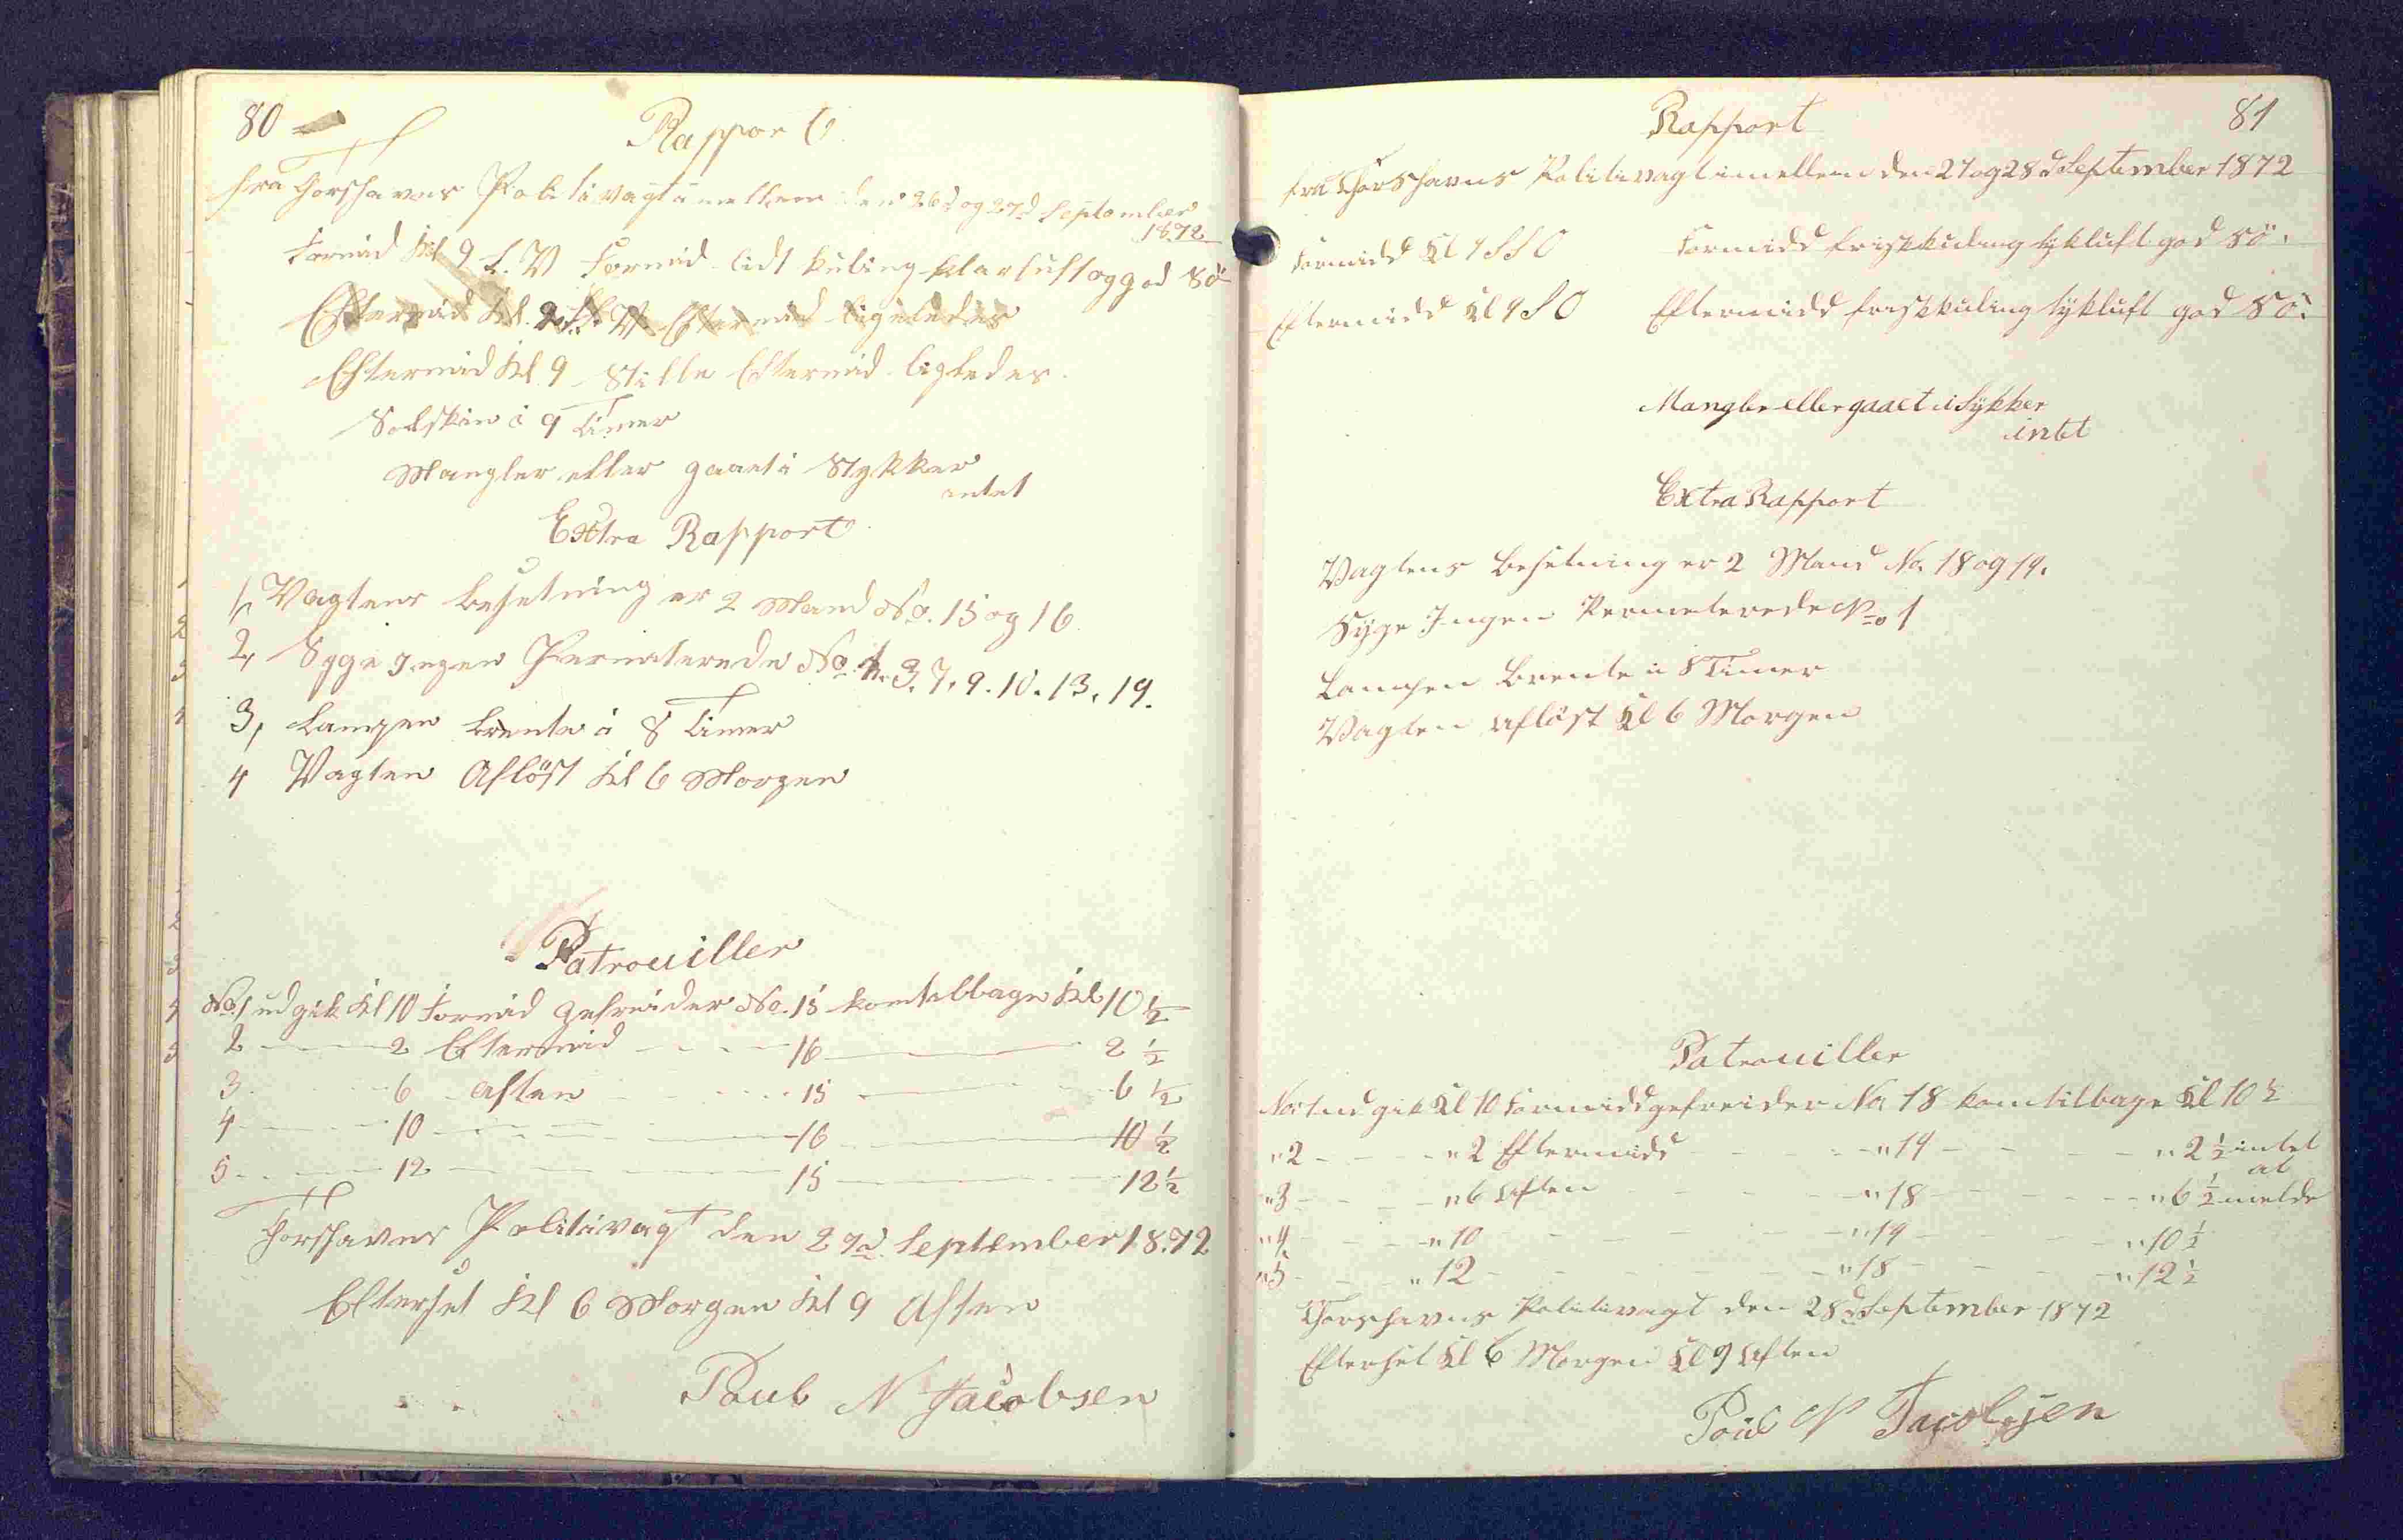 80
Rapport
fra Thorshavns Politivagt imellem den 26d og 27d September
1872
Formid Kl 9 S.V Formid lidt kuling klar luft og god Sö
Eftermid Kl. 9 S.V. Eftermid ligeledes
Eftermid Kl. 9 Stille Eftermid ligledes.
Solskin i 9 Timer
Mangler eller gaaet i Stykker
intet
Extra Rapport
1, Vagtens besetning er 2 Mand No. 15 og 16.
2, Syge Ingen Permeterede No 1. 3. 7. 9. 10. 13. 19.
3, Lampen brente i 8 Timer
4 Vagten Aflöst Kl 6 Morgen
Patrouiller
No 1 udgik Kl 10 Formid gefreider No. 15 kom tilbage Kl 10 ½
2 2 Eftermid 16 2 ½
3 6 Aften 15 6 ½
4 10 16 10 ½
5 12 15 12 ½
Thorshavns Politivagt den 27d. September 1872
Efterset Kl 6 Morgen Kl 9 Aften
Poul N Jacobsen
81
Rapport
fra Thorshavns Politivagt imellem den 27 og 28d September 1872
Formidd Kl 9 SSO Formidd frisk kuling tykluft god Sö.
Eftermidd Kl 9 SO Eftermidd frisk kuling tykluft god Sö.
Mangler eller gaaet i Sykker
intet
Extra Rapport
Vagtens besetning er 2 Mand No. 18 og 19.
Syge Ingen Permeterede No 1
Lampen brente i 8 Timer
Vagten Aflöst Kl 6 Morgen
Patrouiller
No 1 ud gik Kl 10 Formidd gefreider No 18 kom tilbage Kl 10 ½
" 2 " 2 Eftermidd " 19 " 2 ½ intet
at
" 3 " 6 Aften " 18 " 6 ½ melde
" 4 " 10 " 19 " 10 ½
" 5 " 12 " 18 " 12 ½
Thorshavns Politivagt den 28d September 1872
Efterset Kl 6 Morgen Kl 9 Aften
Poul N Jacobsen